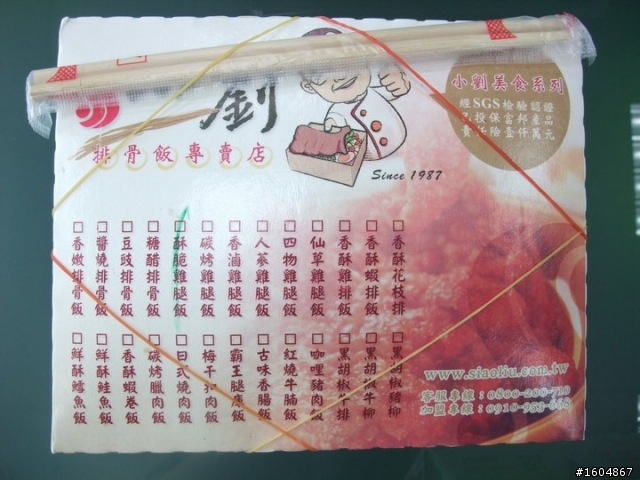 劉
排骨飯專賣店
Since 1987
小劉美食系列
經SGS檢驗認證
投保富邦產品
責任險壹仟萬元
□香酥花枝排
□香酥蝦排飯
□香酥雞排飯
□仙草雞腿飯
□四物雞腿飯
□人蔘雞腿飯
□香滷雞腿飯
□碳烤雞腿飯
□酥脆雞腿飯
□糖醋排骨飯
□豆豉排骨飯
□醬燒排骨飯
□香嫩排骨飯
□黑胡椒豬柳
□黑胡椒牛柳
□黑胡椒牛排
□咖哩豬肉飯
□紅燒牛腩飯
□古味香腸飯
□霸王腿庫飯
□梅干扣肉飯
□日式燒肉飯
□碳烤臘肉飯
□香酥蝦卷飯
□鮮酥鮭魚飯
□鮮酥鱈魚飯
www.siaoliu.com.tw
客服專線：0800-200-710
加盟專線：0910-953-
#1604867